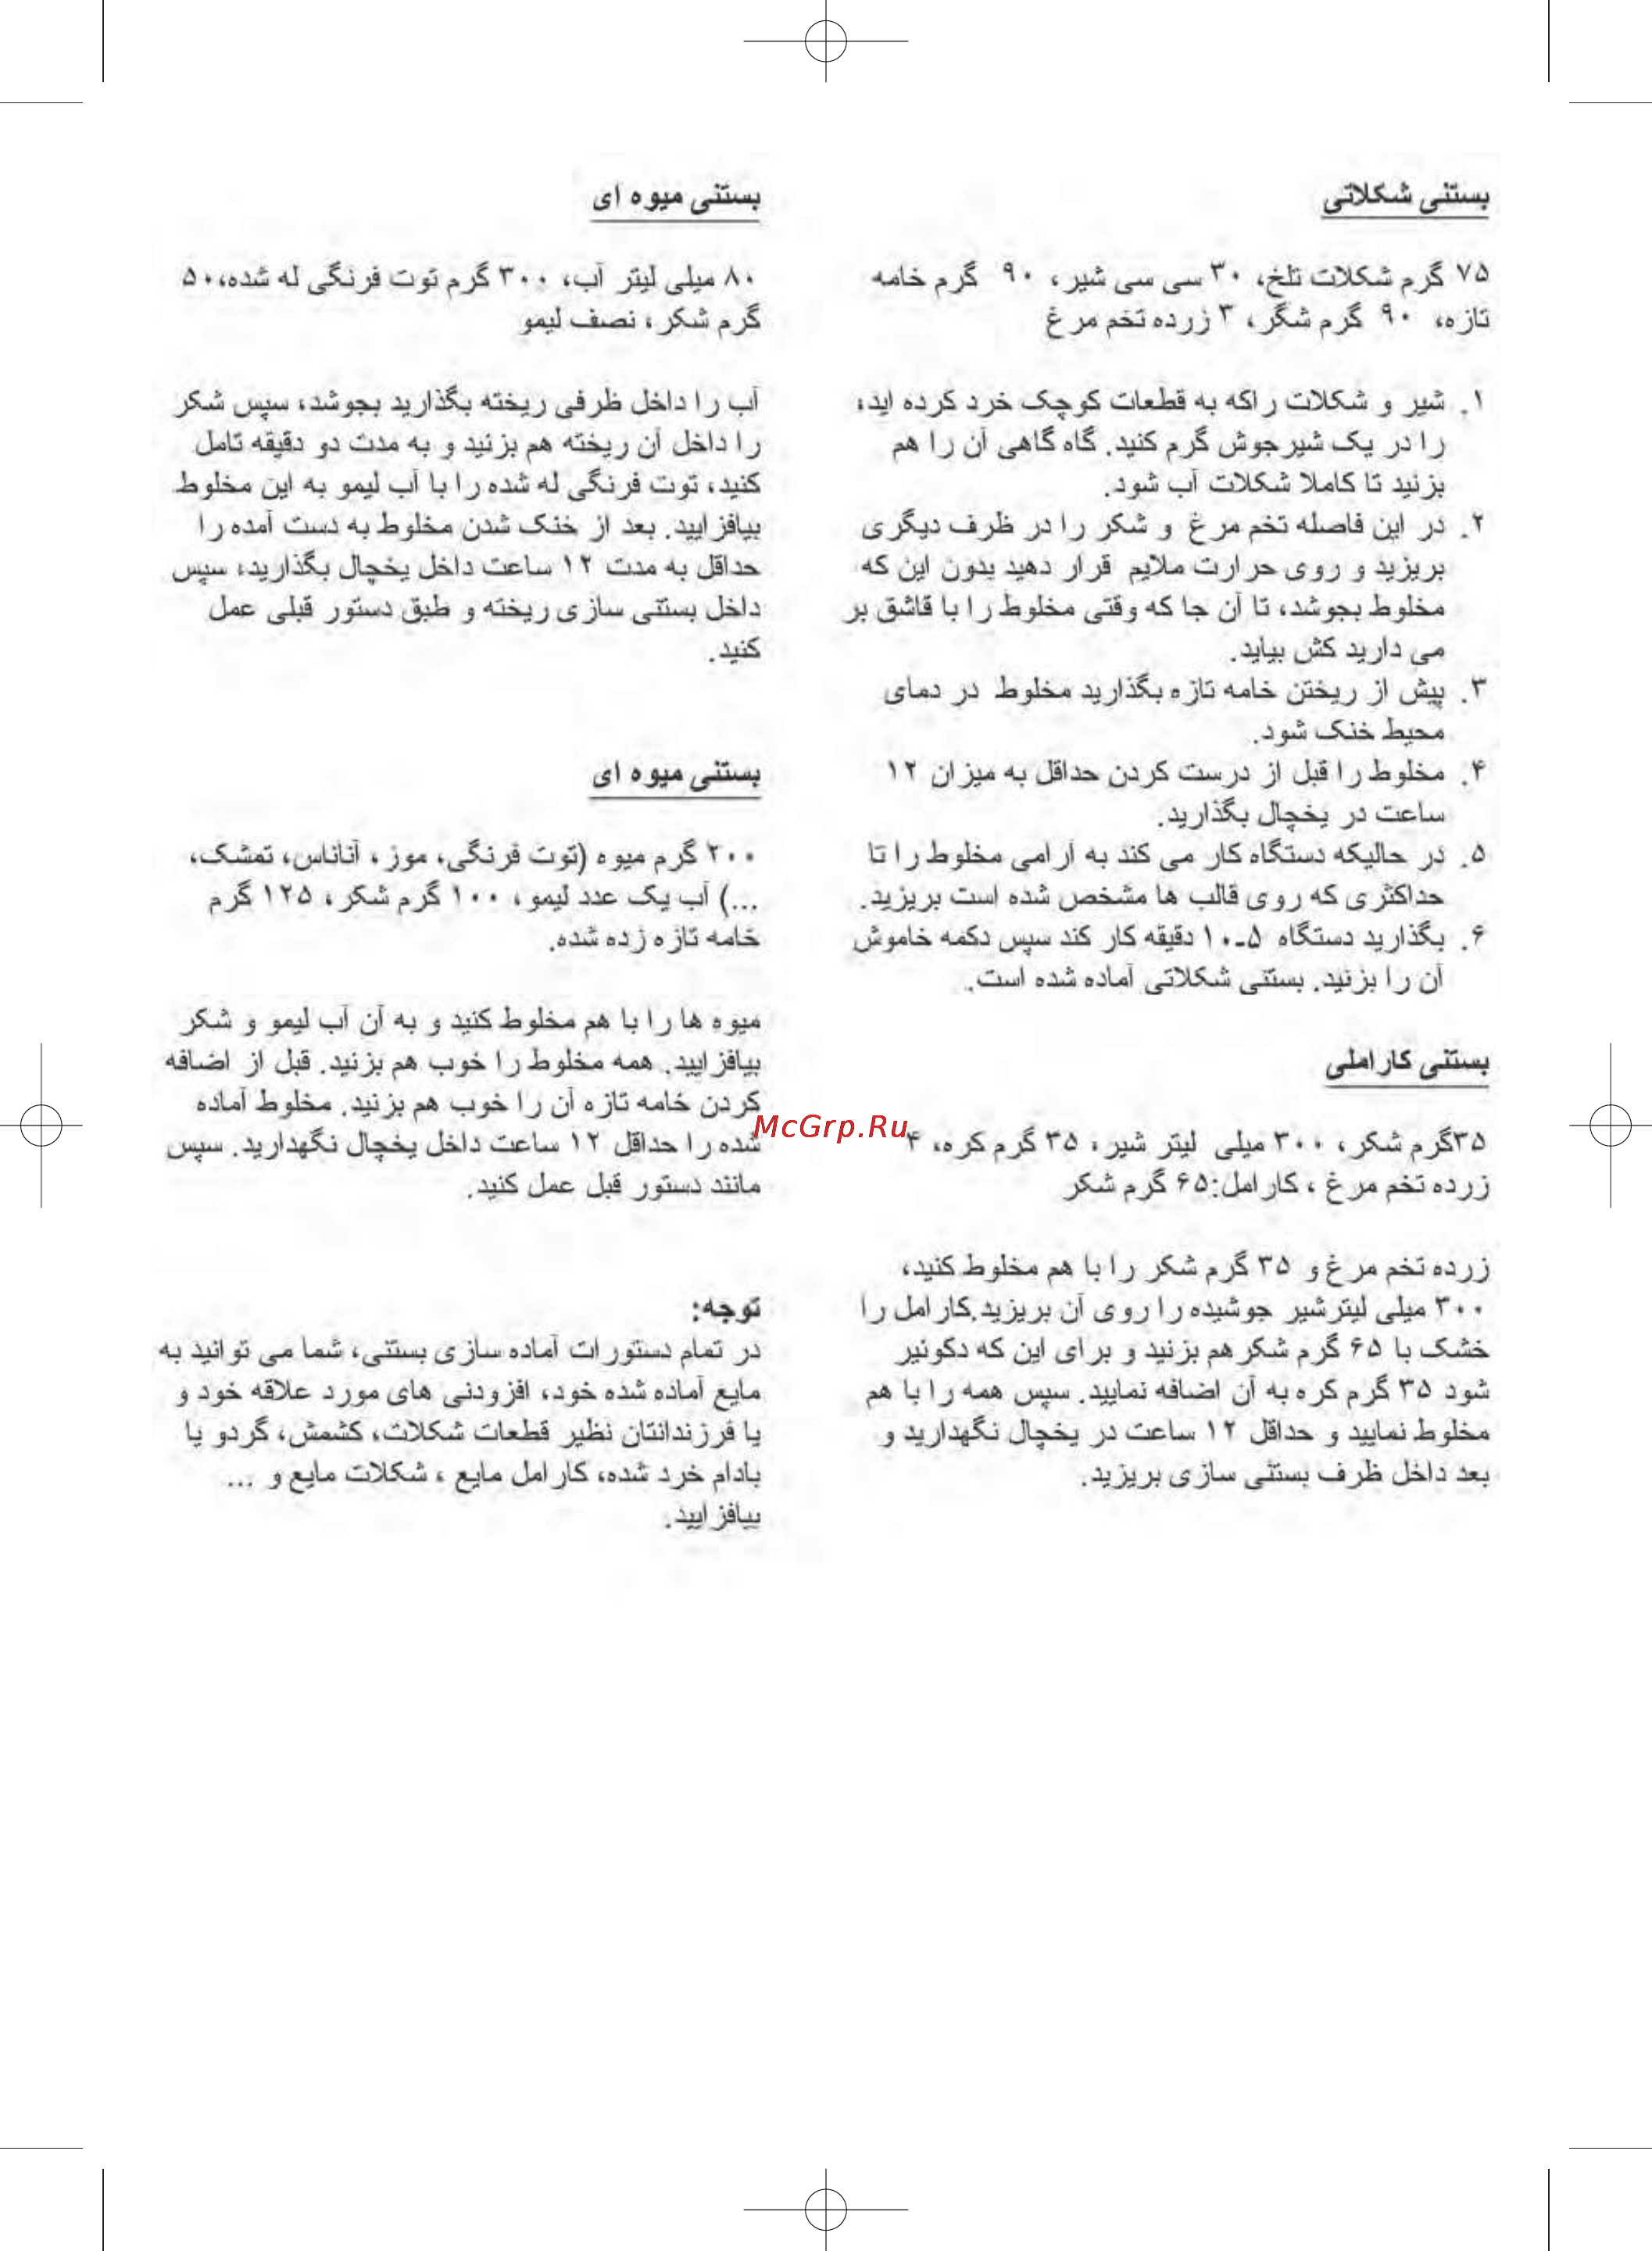 بستنی شکلاتی
۷۵ گرم شکلات تلخ، ۳۰ سی سی شیر، ۹۰ گرم خامه
تازه، ۹۰ گرم شگر، ۳ زرده تخم مرغ
۱. شیر و شکلات راکه به قطعات کوچک خرد کرده اید،
را در یک شیرجوش گرم کنید. گاه گاهی آن را هم
بزنید تا کاملا شکلات آب شود.
۲. در این فاصله تخم مرغ و شکر را در ظرف دیگری
بریزید و روی حرارت ملایم قرار دهید بدون این که
مخلوط بجوشد، تا آن جا که وقتی مخلوط را با قاشق بر
می دارید کش بیاید.
۳. پیش از ریختن خامه تازه بگذارید مخلوط در دمای
محیط خنک شود.
۴. مخلوط را قبل از درست کردن حداقل به میزان ۱۲
ساعت در یخچال بگذارید.
۵. در حالیکه دستگاه کار می کند به آرامی مخلوط را تا
حداکثری که روی قالب ها مشخص شده است بریزید.
۶. بگذارید دستگاه ۵-۱۰ دقیقه کار کند سپس دکمه خاموش
آن را بزنید. بستنی شکلاتی آماده شده است.
بستنی کاراملی
۳۵گرم شکر، ۳۰۰ میلی لیتر شیر، ۳۵ گرم کره، ۴
زرده تخم مرغ ، کارامل:۶۵ گرم شکر
زرده تخم مرغ و ۳۵ گرم شکر را با هم مخلوط کنید،
۳۰۰ میلی لیترشیر جوشیده را روی آن بریزید.کارامل را
خشک با ۶۵ گرم شکر هم بزنید و برای این که دکونیر
شود ۳۵ گرم کره به آن اضافه نمایید. سپس همه را با هم
مخلوط نمایید و حداقل ۱۲ ساعت در یخچال نگهدارید و
بعد داخل ظرف بستنی سازی بریزید.
بستنی میوه ای
۸۰ میلی لیتر آب، ۳۰۰ گرم توت فرنگی له شده،۵۰
گرم شکر، نصف لیمو
آب را داخل ظرفی ریخته بگذارید بجوشد، سپس شکر
را داخل آن ریخته هم بزنید و به مدت دو دقیقه تامل
کنید، توت فرنگی له شده را با آب لیمو به این مخلوط
بیافزایید. بعد از خنک شدن مخلوط به دست آمده را
حداقل به مدت ۱۲ ساعت داخل یخچال بگذارید، سپس
داخل بستنی سازی ریخته و طبق دستور قبلی عمل
کنید.
بستنی میوه ای
۲۰۰ گرم میوه (توت فرنگی، موز، آناناس، تمشک،
...) آب یک عدد لیمو، ۱۰۰ گرم شکر، ۱۲۵ گرم
خامه تازه زده شده.
میوه ها را با هم مخلوط کنید و به آن آب لیمو و شکر
بیافزایید. همه مخلوط را خوب هم بزنید. قبل از اضافه
کردن خامه تازه آن را خوب هم بزنید. مخلوط آماده
شده را حداقل ۱۲ ساعت داخل یخچال نگهدارید. سپس
مانند دستور قبل عمل کنید.
توجه:
در تمام دستورات آماده سازی بستنی، شما می توانید به
مایع آماده شده خود، افزودنی های مورد علاقه خود و
یا فرزندانتان نظیر قطعات شکلات، کشمش، گردو یا
بادام خرد شده، کارامل مایع ، شکلات مایع و ...
بیافزایید.
McGrp.Ru